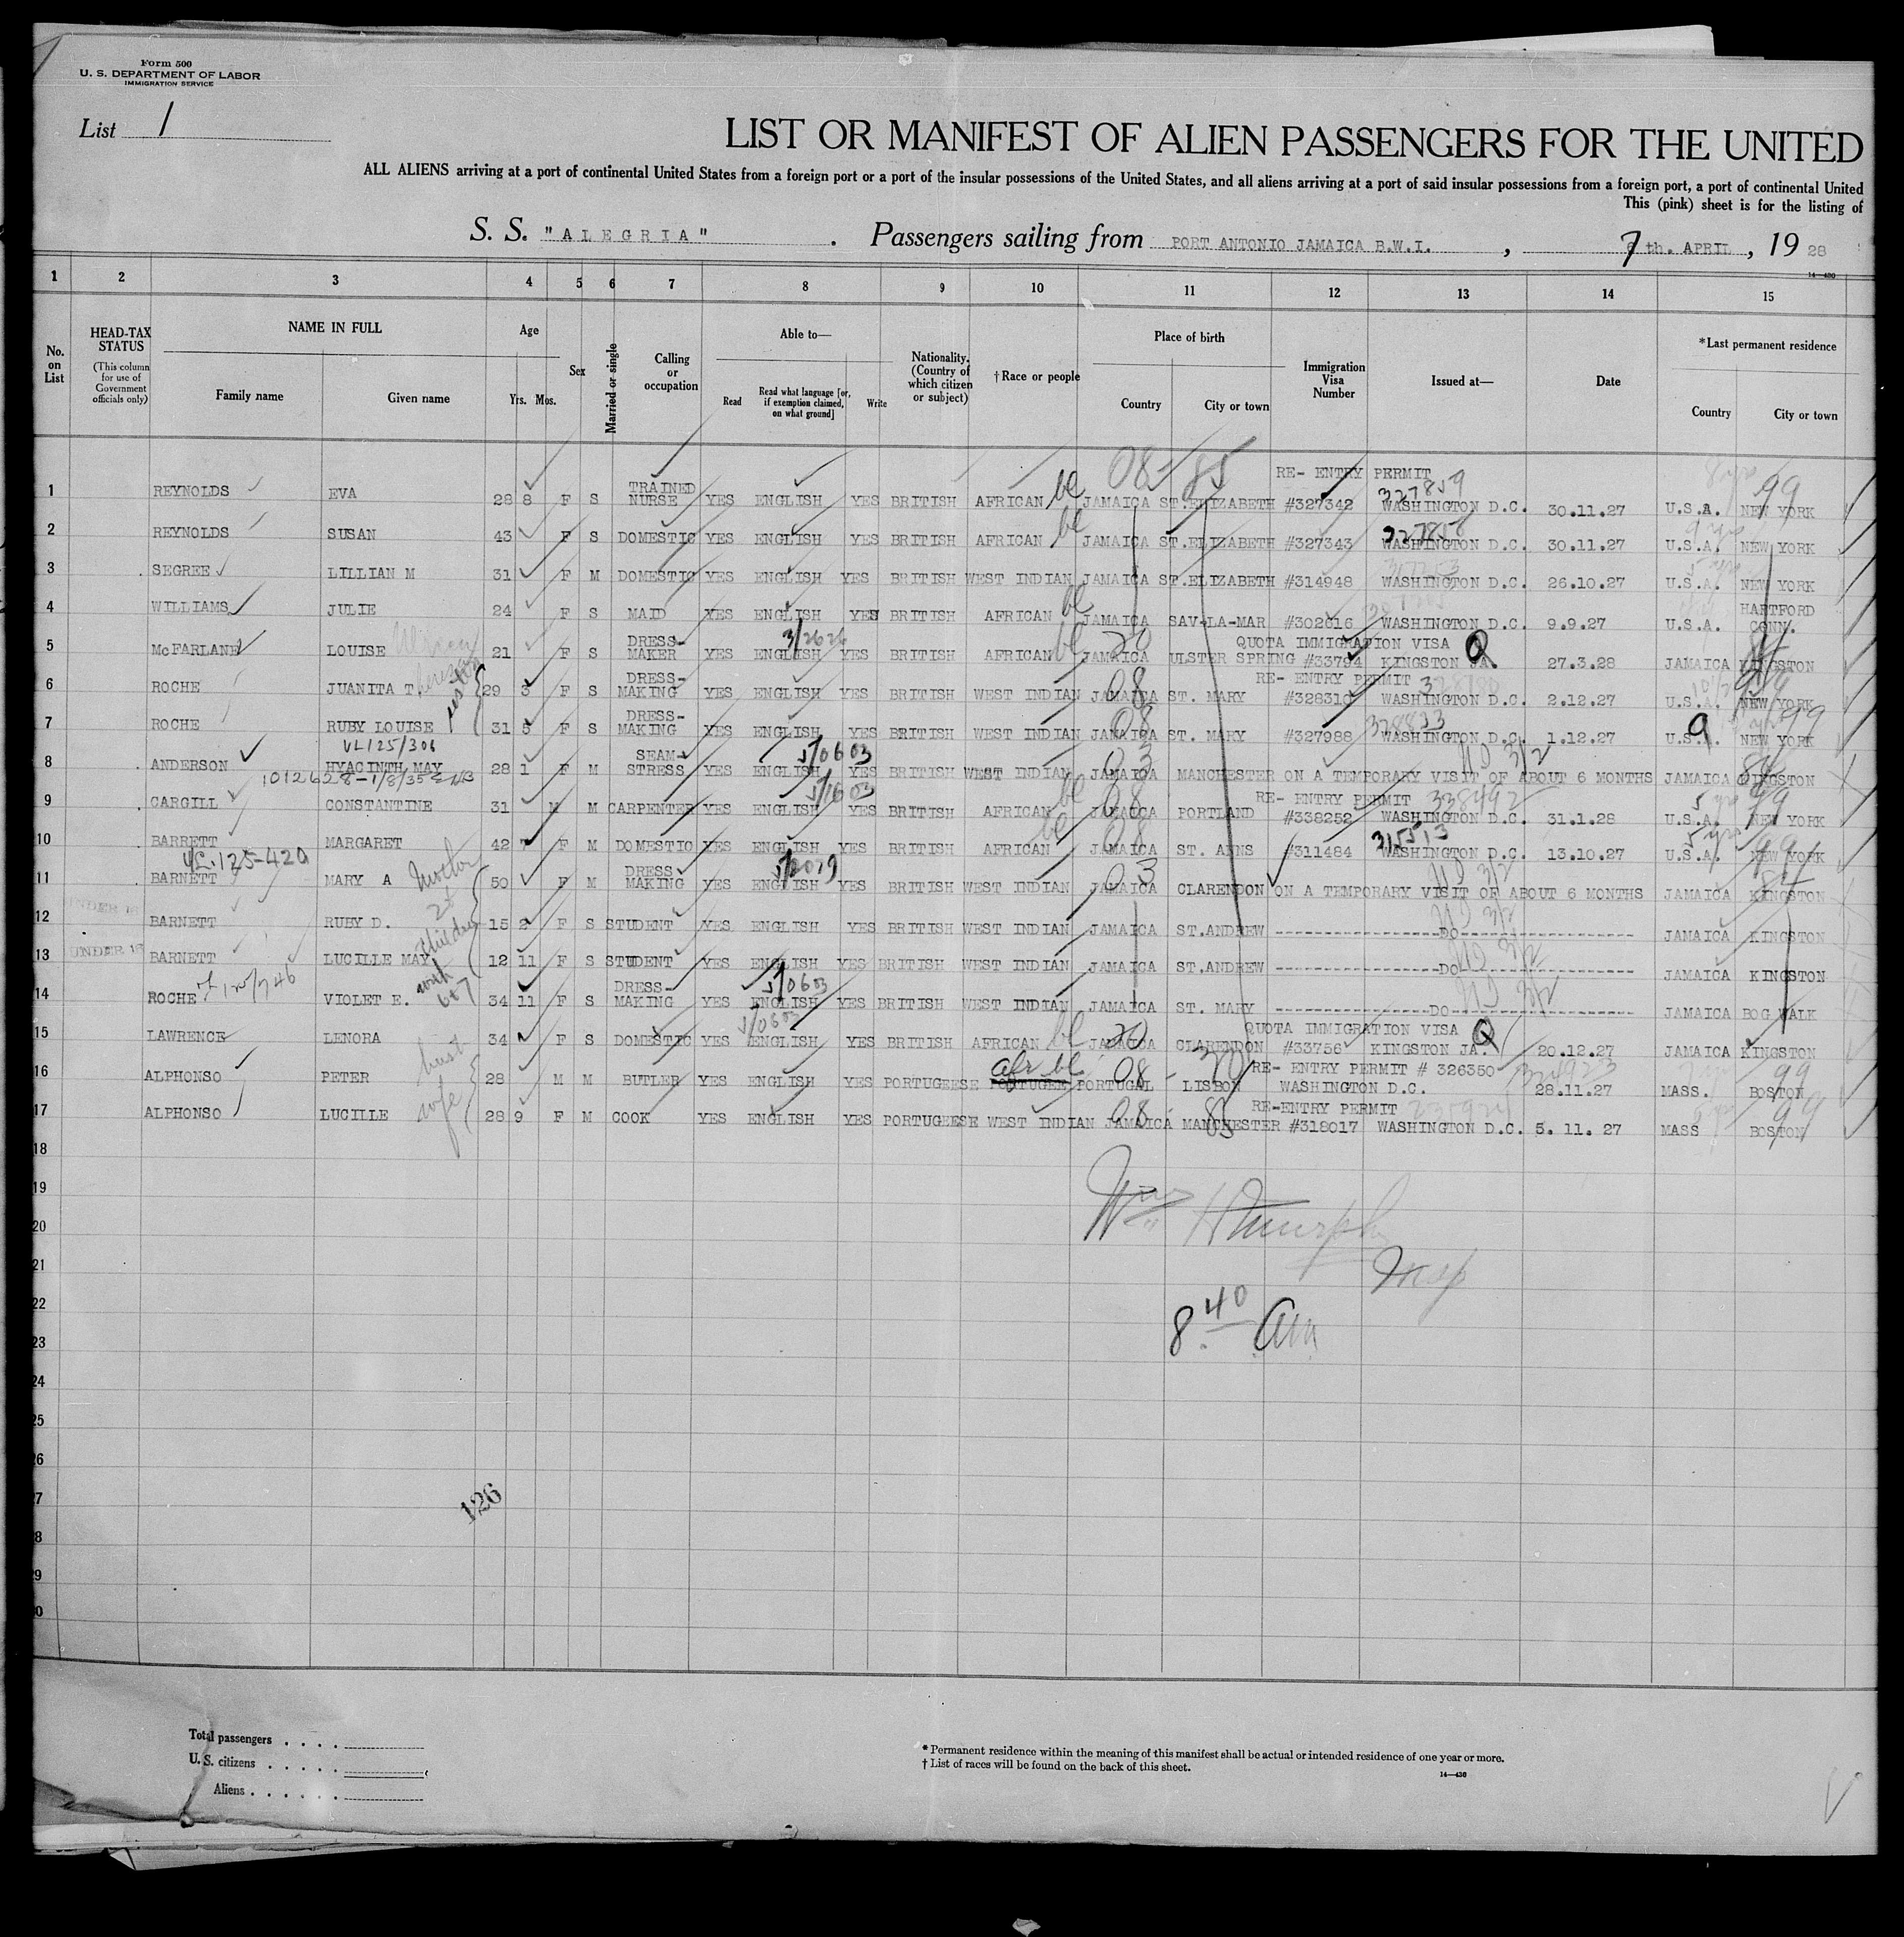 Form 500
U. S. DEPARTMENT OF LABOR
IMMIGRATION SERVICE
List 1
LIST OR MANIFEST OF ALIEN PASSENGERS FOR THE UNITED
ALL ALIENS arriving at a port of continental United States from a foreign port or a port of the insular possessions of the United States, and all aliens arriving at a port of said insular possessions from a foreign port, a port of continental United
This (pink) sheet is for the listing of
S. S. "ALEGRIA". Passengers sailing from PORT ANTONIO JAMAICA B.W.I., 7 th. APRIL, 19 28
14—430
1 2 3 4 5 6 7 8 9 10 11 12 13 14 15
No. on List HEAD-TAX STATUS (This column for use of Government officials only) NAME IN FULL Family name Given name Age Yrs. Mos. Sex Married or single Calling or occupation Able to— Read Read what language [or, if exemption claimed, on what ground] Write Nationality. (Country of which citizen or subject) †Race or people Place of birth Country City or town Immigration Visa Number Issued at— Date *Last permanent residence Country City or town
08 - 85 RE- ENTRY PERMIT 327859 99
1 REYNOLDS EVA 28 8 F S TRAINED NURSE YES ENGLISH YES BRITISH AFRICAN bl JAMAICA ST.ELIZABETH #327342 WASHINGTON D.C. 30.11.27 U.S.A. NEW YORK
2 REYNOLDS SUSAN 43 F S DOMESTIC YES ENGLISH YES BRITISH AFRICAN bl JAMAICA ST.ELIZABETH #327343 327858 WASHINGTON D.C. 30.11.27 U.S.A. NEW YORK
3 SEGREE LILLIAN M 31 F M DOMESTIC YES ENGLISH YES BRITISH WEST INDIAN JAMAICA ST.ELIZABETH #314948 WASHINGTON D.C. 26.10.27 U.S.A. NEW YORK
4 WILLIAMS JULIE 24 F S MAID YES ENGLISH YES BRITISH AFRICAN bl JAMAICA SAV-LA-MAR #302616 WASHINGTON D.C. 9.9.27 U.S.A. HARTFORD CONN.
3/2626 20 QUOTA IMMIGRATION VISA Q
5 McFARLANE LOUISE 21 F S DRESS-MAKER YES ENGLISH YES BRITISH AFRICAN bl JAMAICA ULSTER SPRING #33794 KINGSTON JA. 27.3.28 JAMAICA KINGSTON
RE- ENTRY PERMIT
6 ROCHE JUANITA T. sister 29 3 F S DRESS-MAKING YES ENGLISH YES BRITISH WEST INDIAN JAMAICA 08 ST. MARY #328310 WASHINGTON D.C. 2.12.27 U.S.A. NEW YORK
7 ROCHE RUBY LOUISE 31 5 F S DRESS-MAKING YES ENGLISH YES BRITISH WEST INDIAN JAMAICA 08 ST. MARY #327988 328833 WASHINGTON D.C. 1.12.27 U.S.A. NEW YORK 99
VL125/306 5/0603
8 ANDERSON HYACINTH MAY 28 1 F M SEAM-STRESS YES ENGLISH YES BRITISH WEST INDIAN JAMAICA 03 MANCHESTER ON A TEMPORARY VISIT OF ABOUT 6 MONTHS JAMAICA KINGSTON
1012628-1/8/35 RE- ENTRY PERMIT 338492
9 CARGILL CONSTANTINE 31 M M CARPENTER YES ENGLISH YES BRITISH AFRICAN bl JAMAICA 08 PORTLAND #338252 WASHINGTON D.C. 31.1.28 U.S.A. NEW YORK 99
10 BARRETT MARGARET 42 7 F M DOMESTIC YES ENGLISH YES BRITISH AFRICAN bl JAMAICA 08 ST. ANNS #311484 315513 WASHINGTON D.C. 13.10.27 U.S.A. 5 yrs NEW YORK 99
VL.125-420
11 BARNETT MARY A Mother 50 F M DRESS-MAKING YES ENGLISH YES BRITISH WEST INDIAN JAMAICA 03 CLARENDON ON A TEMPORARY VISIT OF ABOUT 6 MONTHS JAMAICA KINGSTON
UNDER 16
12 BARNETT RUBY D. 2 children 15 2 F S STUDENT YES ENGLISH YES BRITISH WEST INDIAN JAMAICA ST.ANDREW DO JAMAICA KINGSTON
UNDER 16
13 BARNETT LUCILLE MAY 12 11 F S STUDENT YES ENGLISH YES BRITISH WEST INDIAN JAMAICA ST.ANDREW DO JAMAICA KINGSTON
with 6+7 5/0603
14 ROCHE VIOLET E. 34 11 F S DRESS-MAKING YES ENGLISH YES BRITISH WEST INDIAN JAMAICA ST. MARY DO JAMAICA BOG WALK
5/0603 QUOTA IMMIGRATION VISA Q
15 LAWRENCE LENORA 34 F S DOMESTIC YES ENGLISH YES BRITISH AFRICAN bl JAMAICA 20 CLARENDON #33756 KINGSTON JA. 20.12.27 JAMAICA KINGSTON
afr bl RE- ENTRY PERMIT # 326350
16 ALPHONSO PETER husb 28 M M BUTLER YES ENGLISH YES PORTUGEESE PORTUGAL 08 - LISBON WASHINGTON D.C. 28.11.27 MASS. BOSTON 99
RE-ENTRY PERMIT
17 ALPHONSO LUCILLE wife 28 9 F M COOK YES ENGLISH YES PORTUGEESE WEST INDIAN JAMAICA 08 MANCHESTER 85 #318017 WASHINGTON D.C. 5. 11. 27 MASS BOSTON 99
18
19
Wm H Murphy
20
21
Insp
22
8 40 Am
23
24
25
26
27
126
28
29
30
Total passengers . . . .
U. S. citizens . . . . .
Aliens . . . . . .
* Permanent residence within the meaning of this manifest shall be actual or intended residence of one year or more.
† List of races will be found on the back of this sheet.
14—430